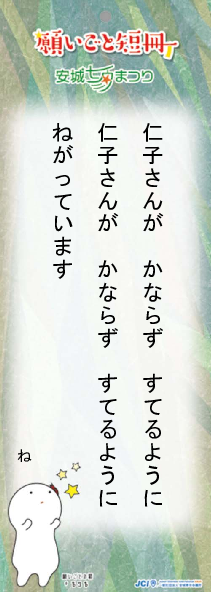 願いごと短冊
安城七夕まつり
仁子さんが　かならず　すてるように
仁子さんが　かならず　すてるように
ねがっています
ね
JCI